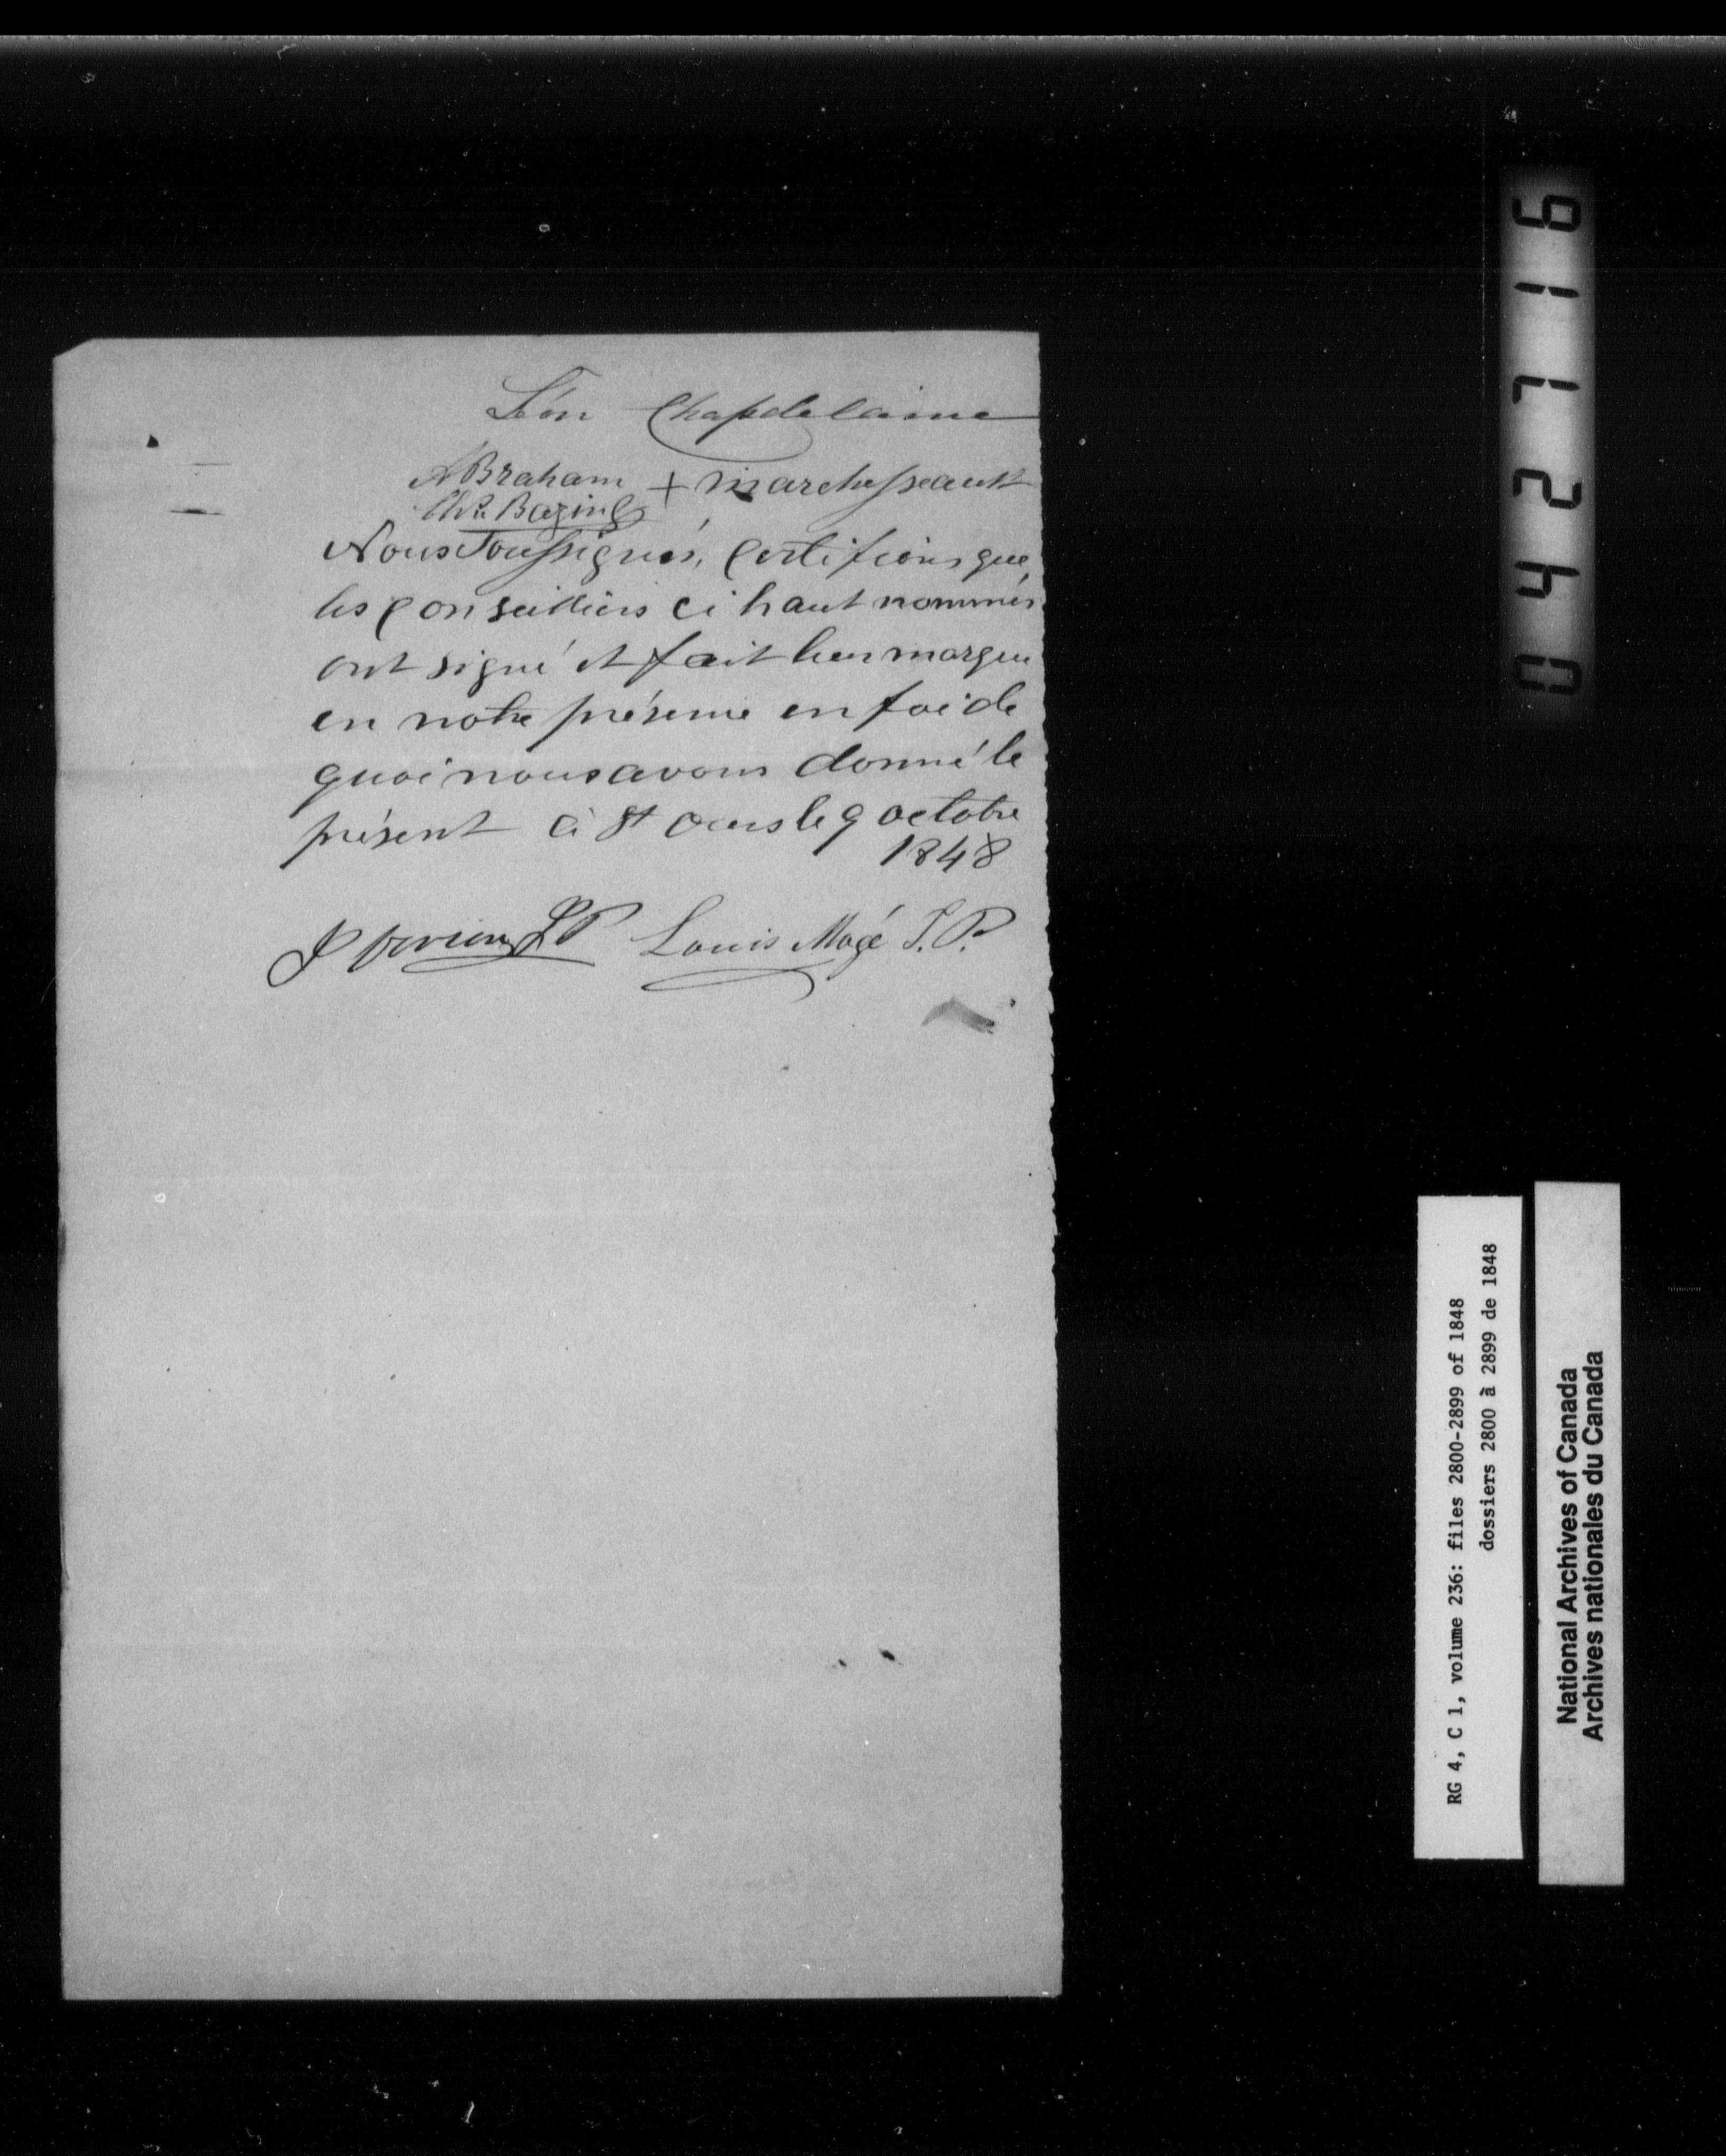 Léon Chapdelaine
ABraham + marchesseault
Chs. Bazin
Nous Soussignés, Certifions que
les Conseillers ci haut nommés
ont signé et fait leur marque
en notre présence en foi de
quoi nous avons donné le
présent à St ours le 9 octobre
1848
J P Louis Magé J.P.
042716
RG 4, C 1, volume 236: files 2800-2899 of 1848
dossiers 2800 à 2899 de 1848
National Archives of Canada
Archives nationales du Canada